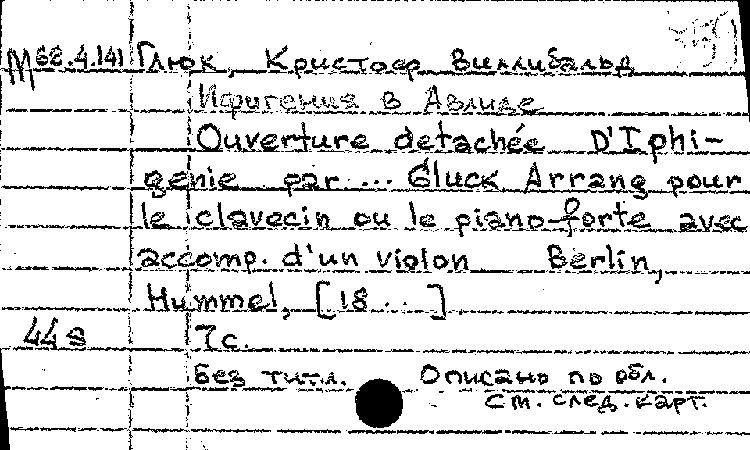 М68.4.141 Глюк, Кристоф Виллибальд
Ифигения в Авлиде
Ouverture detachée D'Iphi-
genie par ... Gluck Arrang pour
le clavecin ou le piano-forte avec
accomp. d'un violon Berlin,
Hummel, [18 . . ]
448 7 с.
Без титл. Описано по обл.
См. след. карт.